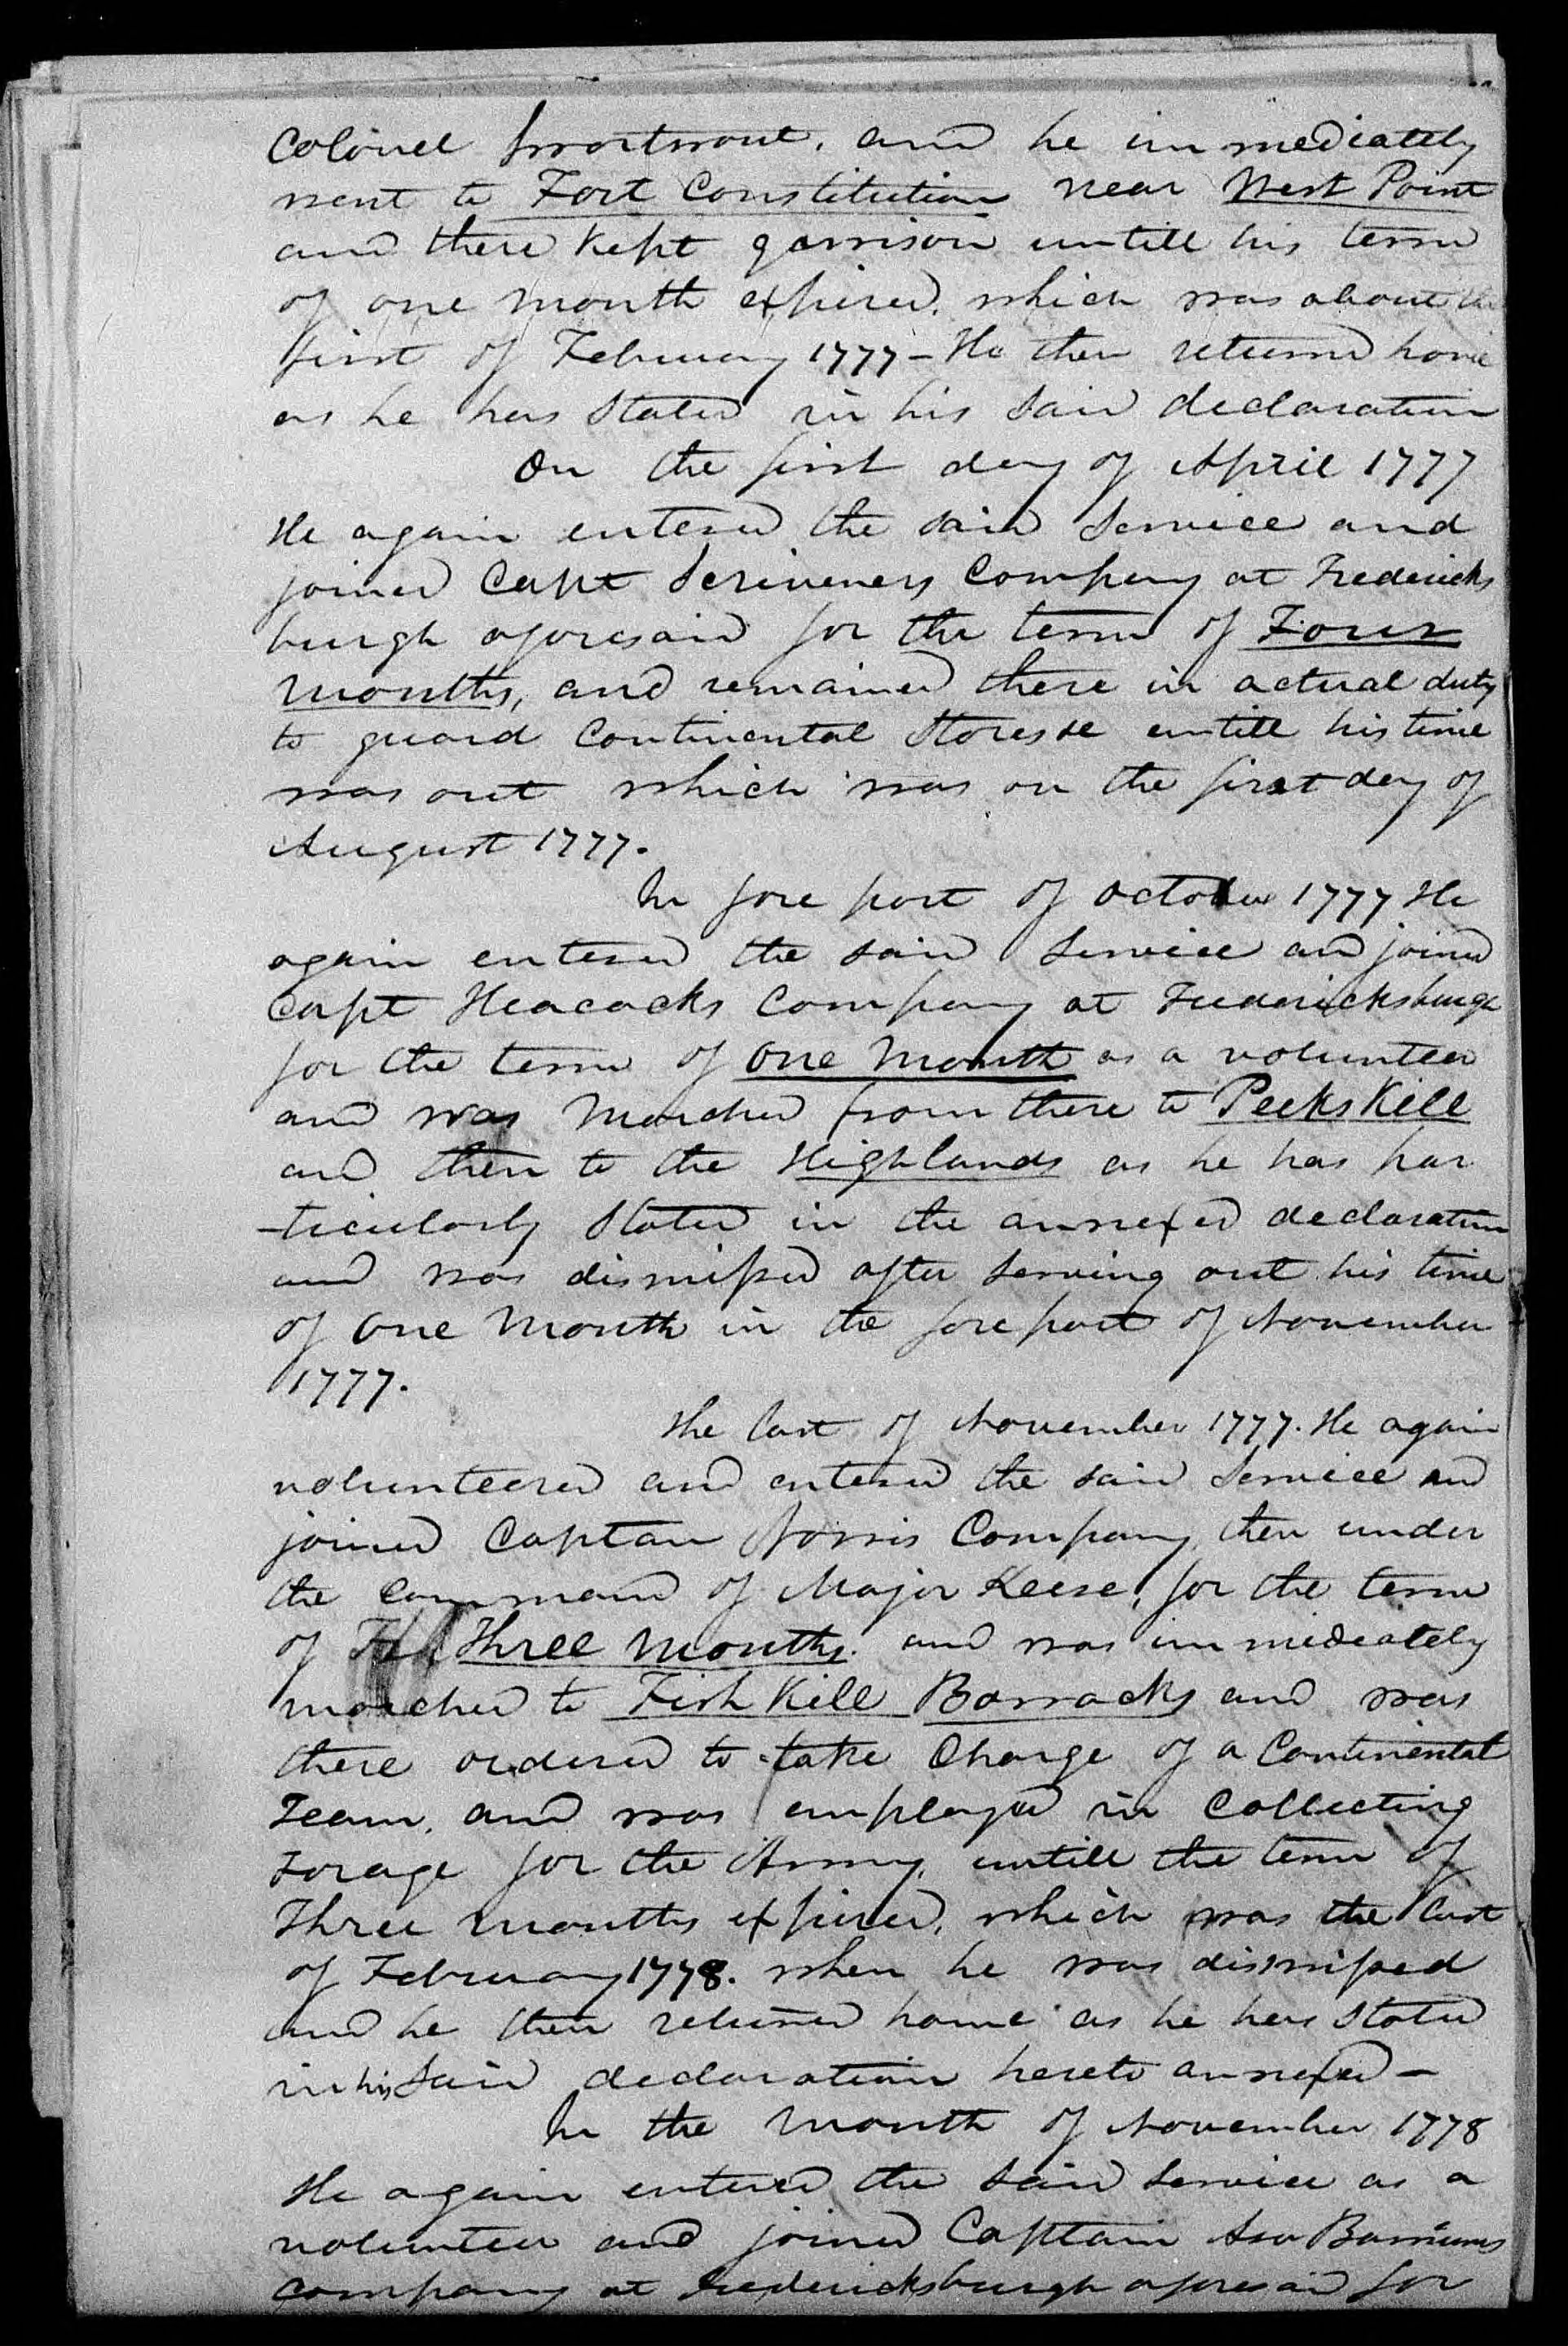 Colonel Swortwout, and he immediately
went to Fort Constitution near West Point
and there kept garrison untill his term
of one month expired, which was about the
first of February 1777 - He then returned home
as he has stated in his said declaration
On the first day of April 1777
He again entered the said Service and
joined Capt Scriveners Company at Fredericks
burgh aforesaid for the term of Four
months, and remained there in actual duty
to guard Continental Stores &c untill his time
was out which was on the first day of
August 1777.
In fore part of October 1777 He
again entered the said Service and joined
Capt Heacocks Company at Fredericksburgh
for the term of one month as a volunteer
and was Marched from there to Peeks Kill
and then to the Highlands as he has par
-ticularly stated in the annexed declaration
and was dismissed after serving out his time
of one Month in the fore part of November
1777.
The last of November 1777. He again
volunteered and entered the said Service and
joined Captan Norris Company, then under
the Command of Major Keese, for the term
of Three months. and was immediately
marched to Fish Kill Barracks and was
there ordered to take Charge of a Continental
Team, and was employed in Collecting
Forage for the Army, untill the term of
Three months expired, which was the last
of February 1778. when he was dismissed
and he then returned home as he has stated
in his said declaration hereto annexed -
In the Month of November 1778
He again entered the said Service as a
volunteer and joined Captain Barnums
company at Fredericksburgh aforesaid for